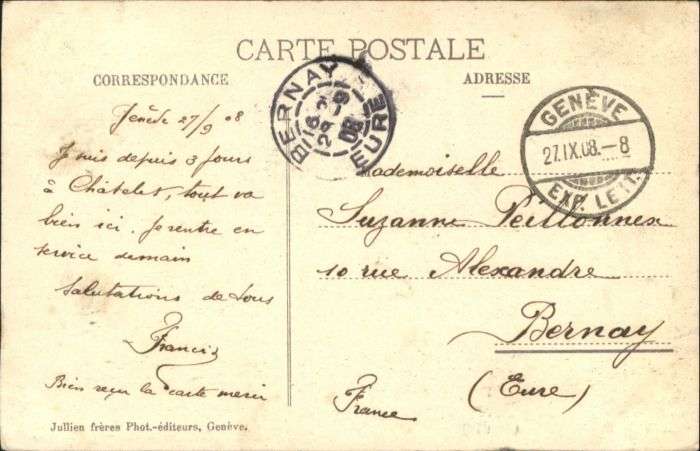 CARTE POSTALE
CORRESPONDANCE
ADRESSE
Genève 27/9 08
Je suis depuis 3 jours
à Châtelet, tout va
bien ici. Je rentre en
service demain
Salutations de tous
Francis
Bien reçu la carte merci
Jullien frères Phot.-éditeurs, Genève.
BERNAY
EURE
GENÈVE
27.IX.08.-8
EXP. LETT.
Mademoiselle
Suzanne Peillonnex
10 rue Alexandre
Bernay
(Eure)
France